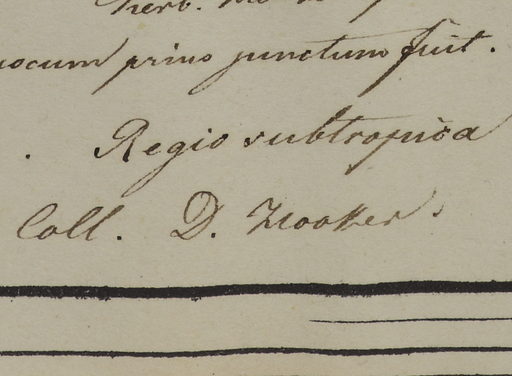 prius junctum fuit.
. Regio subtropica
Coll. D. Hooker.